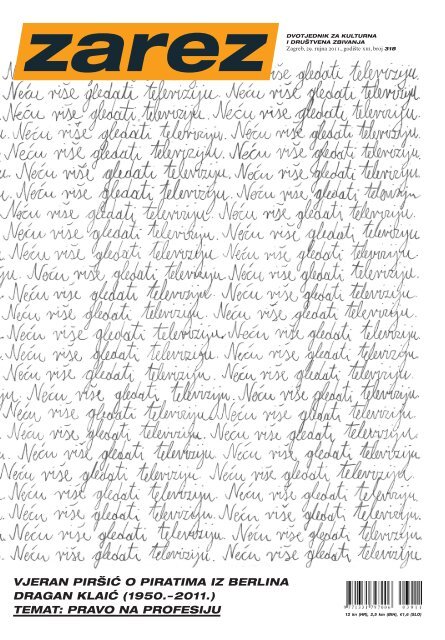 zarez
DVOTJEDNIK ZA KULTURNA
I DRUŠTVENA ZBIVANJA
Zagreb, 29. rujna 2011., godište XIII, broj 318
Neću više gledati televiziju. Neću više gledati televiziju.
Neću više gledati televiziju. Neću više gledati televiziju.
Neću više gledati televiziju. Neću više gledati televiziju.
Neću više gledati televiziju. Neću više gledati televiziju.
Neću više gledati televiziju. Neću više gledati televiziju.
Neću više gledati televiziju. Neću više gledati televiziju.
Neću više gledati televiziju. Neću više gledati televiziju.
Neću više gledati televiziju. Neću više gledati televiziju.
Neću više gledati televiziju. Neću više gledati televiziju.
Neću više gledati televiziju. Neću više gledati televiziju.
ju. Neću više gledati televiziju. Neću više gledati televiziju.
Neću više gledati televiziju. Neću više gledati televiziju.
Neću više gledati televiziju. Neću više gledati televiziju.
Neću više gledati televiziju. Neću više gledati televiziju.
Neću više gledati televiziju. Neću više gledati televiziju.
Neću više gledati televiziju. Neću više gledati televiziju.
ju. Neću više gledati televiziju. Neću više gledati televiziju.
Neću više gledati televiziju. Neću više gledati televiziju.
Neću više gledati televiziju. Neću više gledati televiziju.
Neću više gledati televiziju. Neću više gledati televiziju.
Neću više gledati televiziju. Neću više gledati televiziju.
Neću više gledati televiziju. Neću više gledati televiziju.
Neću više gledati televiziju. Neću više gledati televiziju.
Neću više gledati televiziju. Neću više gledati televiziju.
Neću više gledati televiziju. Neću više gledati televiziju.
VJERAN PIRŠIĆ O PIRATIMA IZ BERLINA
DRAGAN KLAIĆ (1950.-2011.)
TEMAT: PRAVO NA PROFESIJU
12 kn (HR), 2,5 km (BIH), €1,6 (SLO)